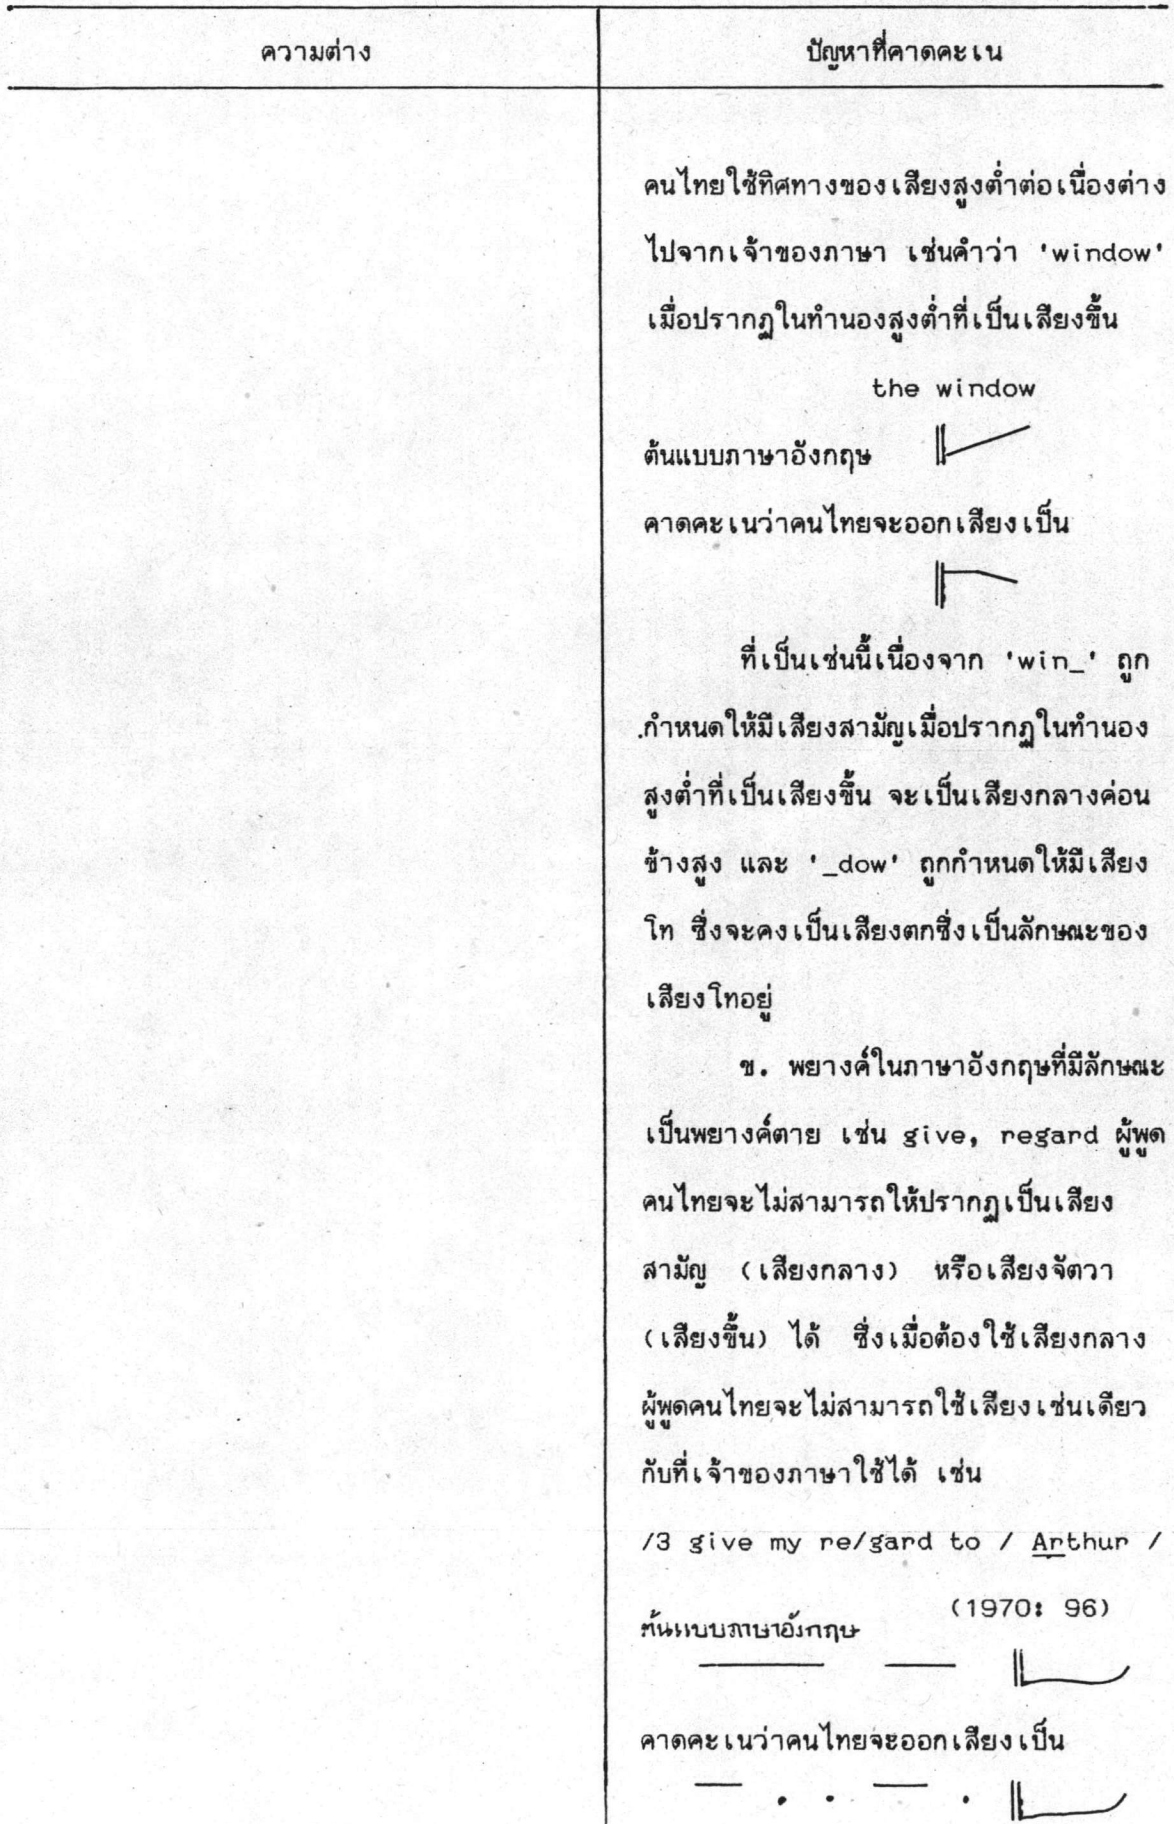 ความต่าง
ปัญหาที่คาดคะเน
คนไทยใช้ทิศทางของเสียงสูงต่ำต่อเนื่องต่าง
ไปจากเจ้าของภาษา เช่นคำว่า 'window'
เมื่อปรากฏในทำนองสูงต่ำที่เป็นเสียงขึ้น
the window
ต้นแบบภาษาอังกฤษ
คาดคะเนว่าคนไทยจะออกเสียงเป็น
ที่เป็นเช่นนี้เนื่องจาก 'win_' ถูก
กำหนดให้มีเสียงสามัญเมื่อปรากฏในทำนอง
สูงต่ำที่เป็นเสียงขึ้น จะเป็นเสียงกลางค่อน
ข้างสูง และ '_dow' ถูกกำหนดให้มีเสียง
โท ซึ่งจะคงเป็นเสียงตกซึ่งเป็นลักษณะของ
เสียงโทอยู่
ข. พยางค์ในภาษาอังกฤษที่มีลักษณะ
เป็นพยางค์ตาย เช่น give, regard ผู้พูด
คนไทยจะไม่สามารถให้ปรากฏเป็นเสียง
สามัญ (เสียงกลาง) หรือเสียงจัตวา
(เสียงขึ้น) ได้ ซึ่งเมื่อต้องใช้เสียงกลาง
ผู้พูดคนไทยจะไม่สามารถใช้เสียงเช่นเดียว
กับที่เจ้าของภาษาใช้ได้ เช่น
/3 give my re/gard to / Arthur /
(1970: 96)
ต้นแบบภาษาอังกฤษ
คาดคะเนว่าคนไทยจะออกเสียงเป็น